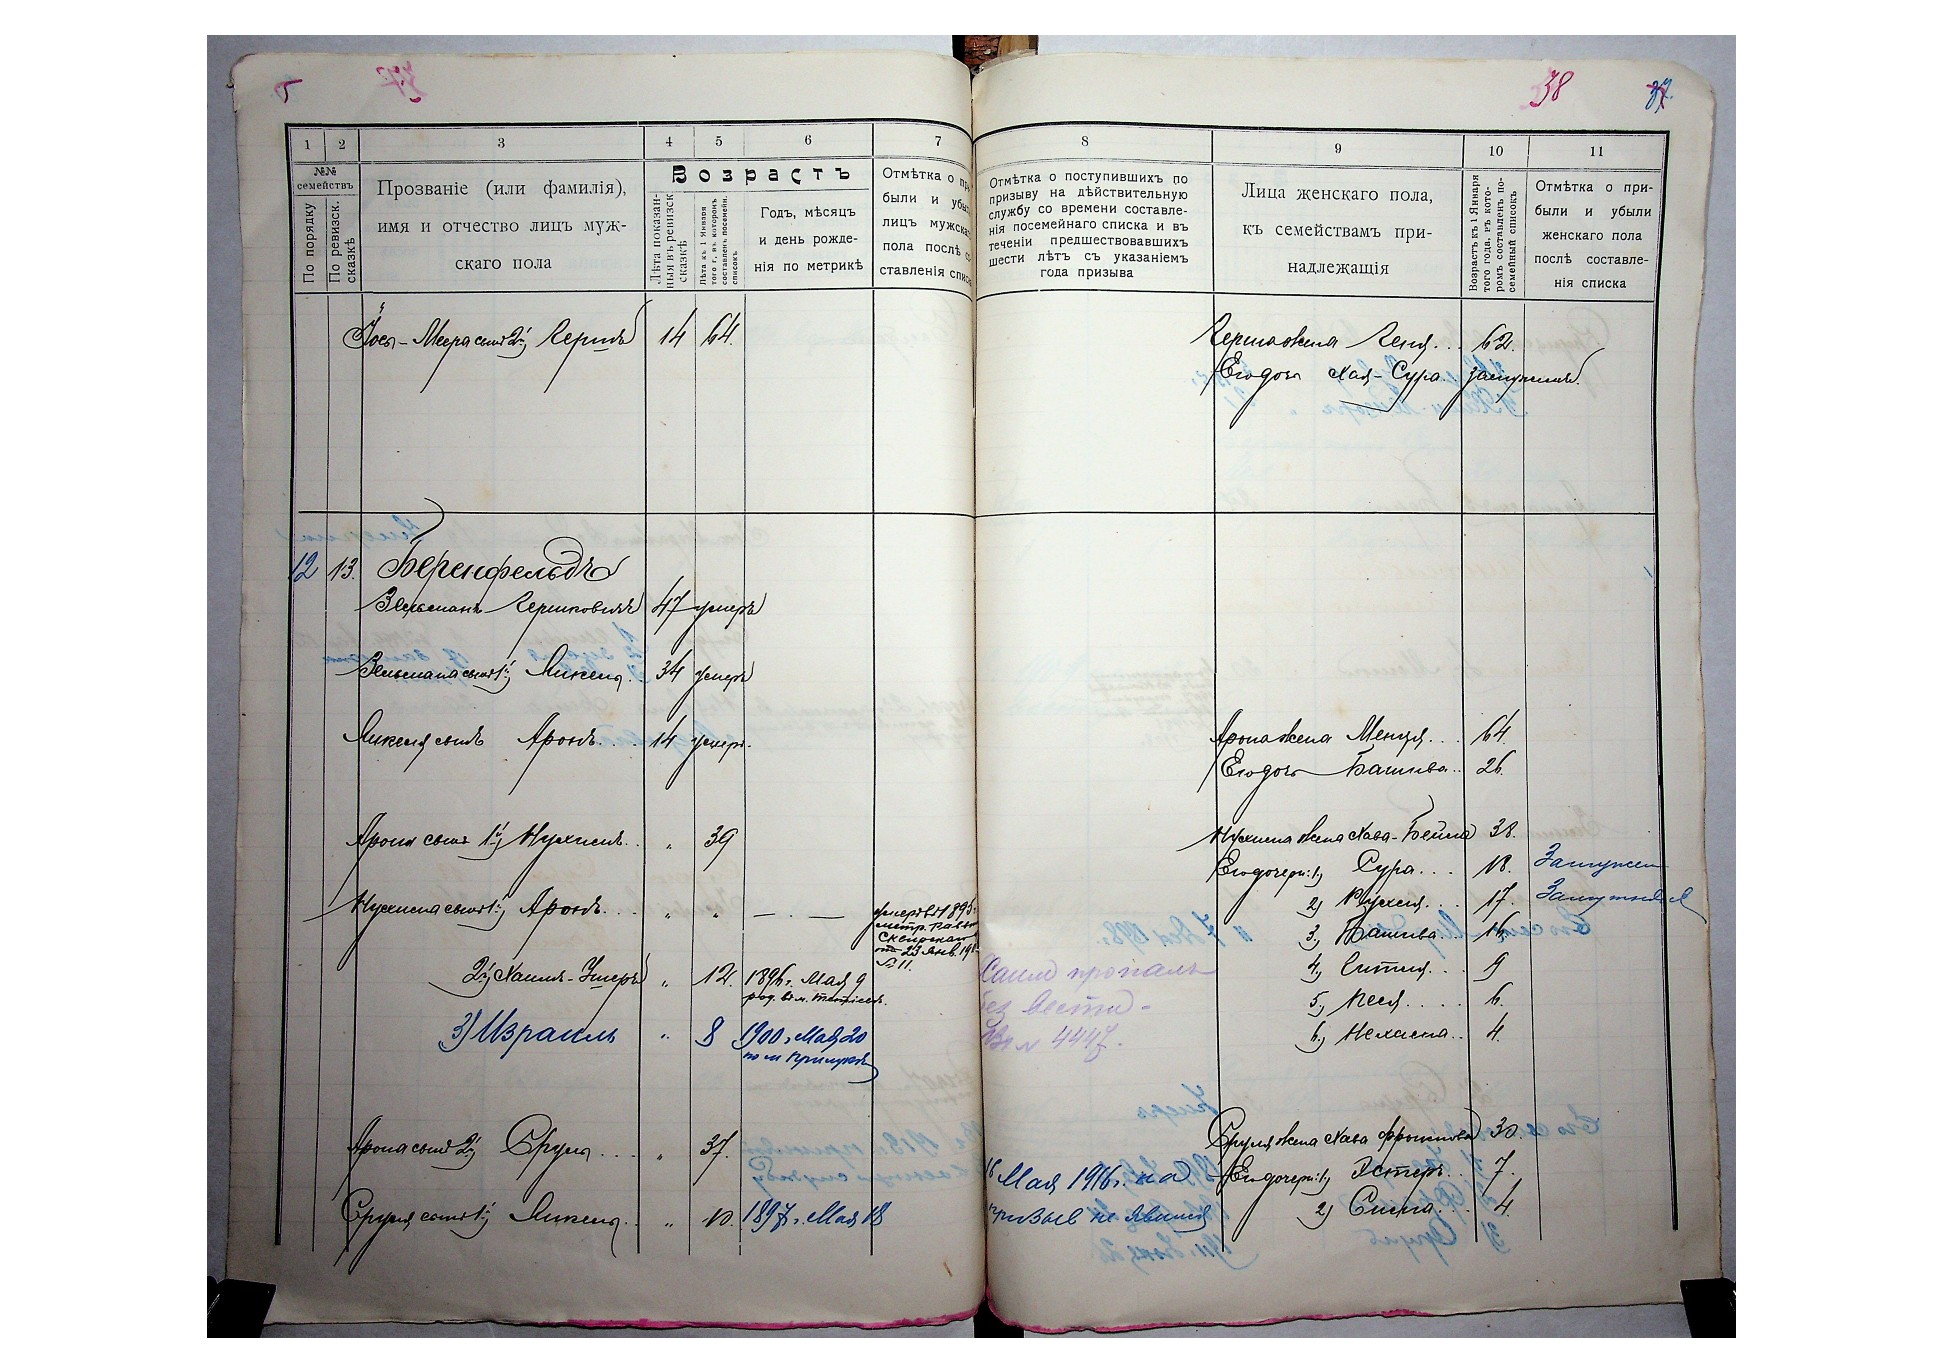 38
37
1
2
3
4
5
6
7
8
9
10
11
№№
семействъ
По порядку
По ревизск. сказкѣ
Прозваніе (или фамилія),
имя и отчество лицъ муж-
скаго пола
Возрастъ
Лѣта показан-
ныя въ ревизск
сказкѣ
Лѣта къ 1 Января
того г., въ которомъ
составленъ посемейн.
списокъ
Годъ, мѣсяцъ
и день рожде-
нія по метрикѣ
Отмѣтка о пр
были и убы
лицъ мужска
пола послѣ с
ставленія списк
Отмѣтка о поступившихъ по
призыву на дѣйствительную
службу со времени составле-
нія посемейнаго списка и въ
теченіи предшествовавшихъ
шести лѣтъ съ указаніемъ
года призыва
Лица женскаго пола,
къ семействамъ при-
надлежащія
Возрастъ къ 1 Января
того года, въ кото-
ромъ составленъ по-
семейный списокъ
Отмѣтка о при-
были и убыли
женскаго пола
послѣ составле-
нія списка
Іось-Меера сынъ 2й, Гершъ 14 64.
Герша жена Геня... 62.
Его дочь Хая-Сура. замужемъ.
12 13. Беренфельдъ
Зельманъ Гершковичъ 47 умеръ
Зельмана сынъ 1й, Микель. 34 умеръ
Микеля сынъ Аронъ.... 14 умеръ.
Арона жена Менця... 64.
Его дочь Башива.. 26.
Арона сынъ 1й, Нухимъ.. " 39
Нухима жена Хава-Бейла 38.
Его дочери: 1, Сура... 18. Замужем
Нухима сынъ 1й, Аронъ... " " — . —
умеръ въ 1895
метр. равв
Сквирскаго
отъ 23 Янв. 191
№ 11.
2) Рухля. 17. Замужняя
3, Башива. 16.
2й, Хаимъ-Ушеръ " 12. 1896 г. Мая 9
род. въ м.
Хаим пропалъ
без вести -
№ 4447.
4, Ситля... 9
5, Песя..... 6.
3) Израиль " 8 1900 г. Мая 20
по м
6, Нехама.. 4.
Арона сынъ 2й, Сруль.... " 37.
Сруля жена Хава 30.
16 Мая 1916 г. на
призыв не явился
Его дочери: 1, Эстеръ.. 7.
Сруля сынъ 1й, Микель.. " 10. 1897 г. Мая 18
2) Сима... 4.